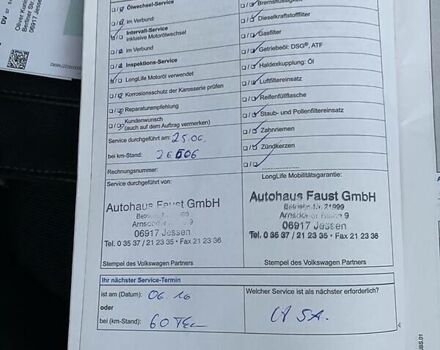 Ölwechsel-Service
im Verbund
Intervall-Service
inklusive Motorölwechsel
im Verbund
Inspektions-Service
LongLife Motoröl verwendet
Korrosionsschutz der Karosserie prüfen
Reparaturempfehlung
Kundenwunsch
(auch auf dem Auftrag vermerken)
Service durchgeführt am: 25.06.
bei km-Stand:
Rechnungsnummer:
Service durchgeführt von:
Autohaus Faust GmbH
06917 Jessen
Tel. 0 35 37 / 21 2 35 • Fax 21 23 36
Stempel des Volkswagen Partners
Bremsflüssigkeit
Dieselkraftstofffilter
Gasfilter
Getriebeöl: DSG®, ATF
Haldexkupplung: Öl
Luftfiltereinsatz
Reifenfüllflasche
Staub- und Pollenfiltereinsatz
Zahnriemen
Zündkerzen
LongLife Mobilitätsgarantie:
Autohaus Faust GmbH
Betriebs-Nr. 21999
06917 Jessen
Tel. 0 35 37 / 21 2 35 • Fax 21 23 36
Stempel des Volkswagen Partners
Ihr nächster Service-Termin
ist am (Datum): 06.16
oder
bei (km-Stand): 60
Welcher Service ist als nächster erforderlich?
06917 Jessen